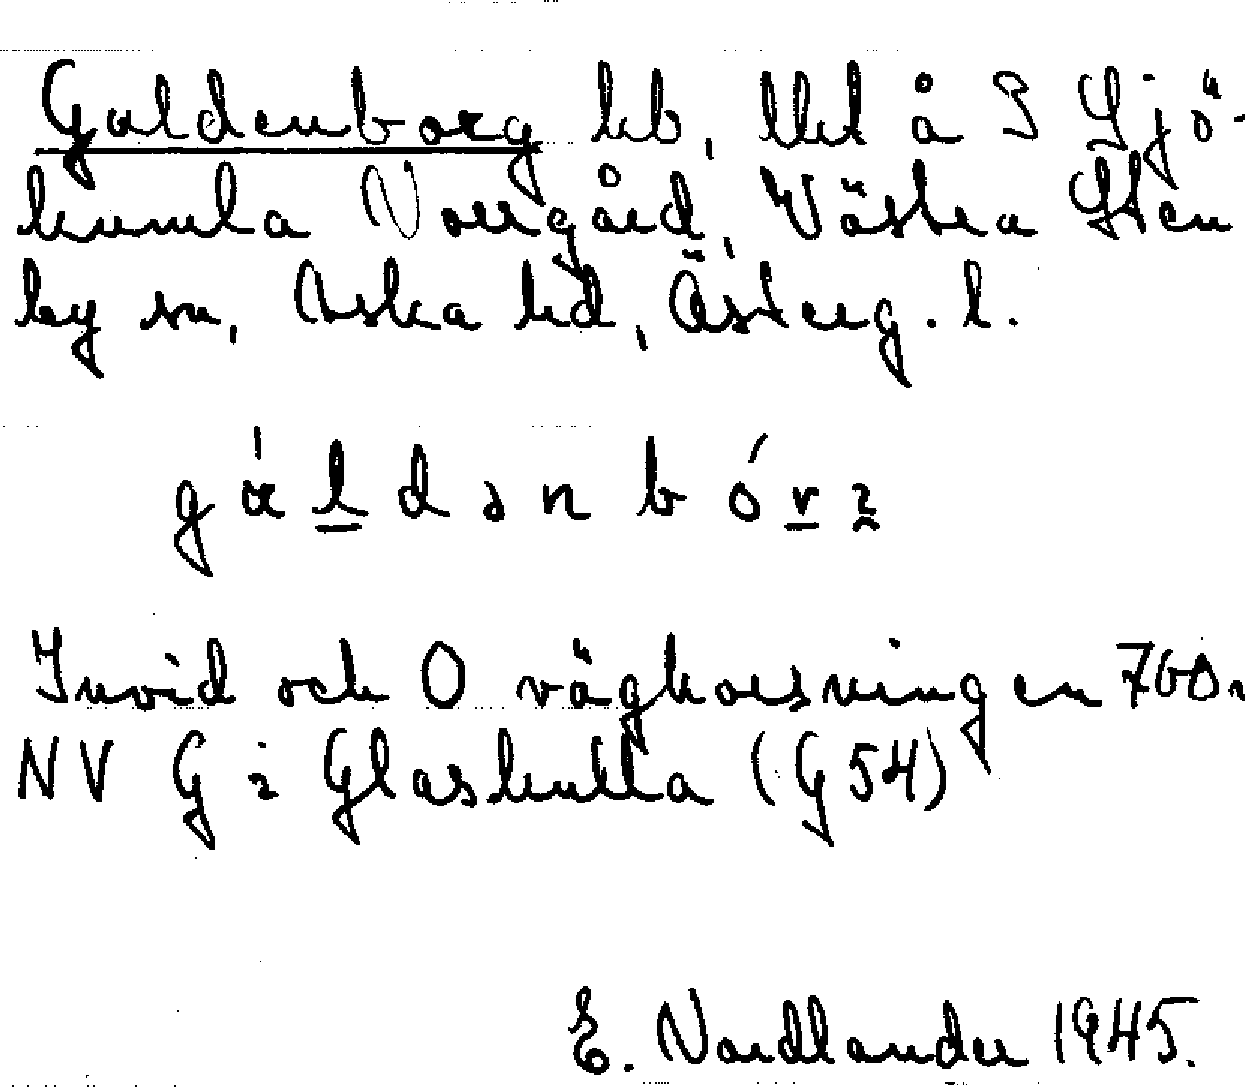 Galdenborg hb, lht å 3 Sjö-
kumla Norrgård, Västra Sten
by sn, Aska hd, Österg. l.
gáldənbórʐ
Invid och O vägkorsningen 700 m
NV G i Glashulta (G 54)
E. Nordlander 1945.